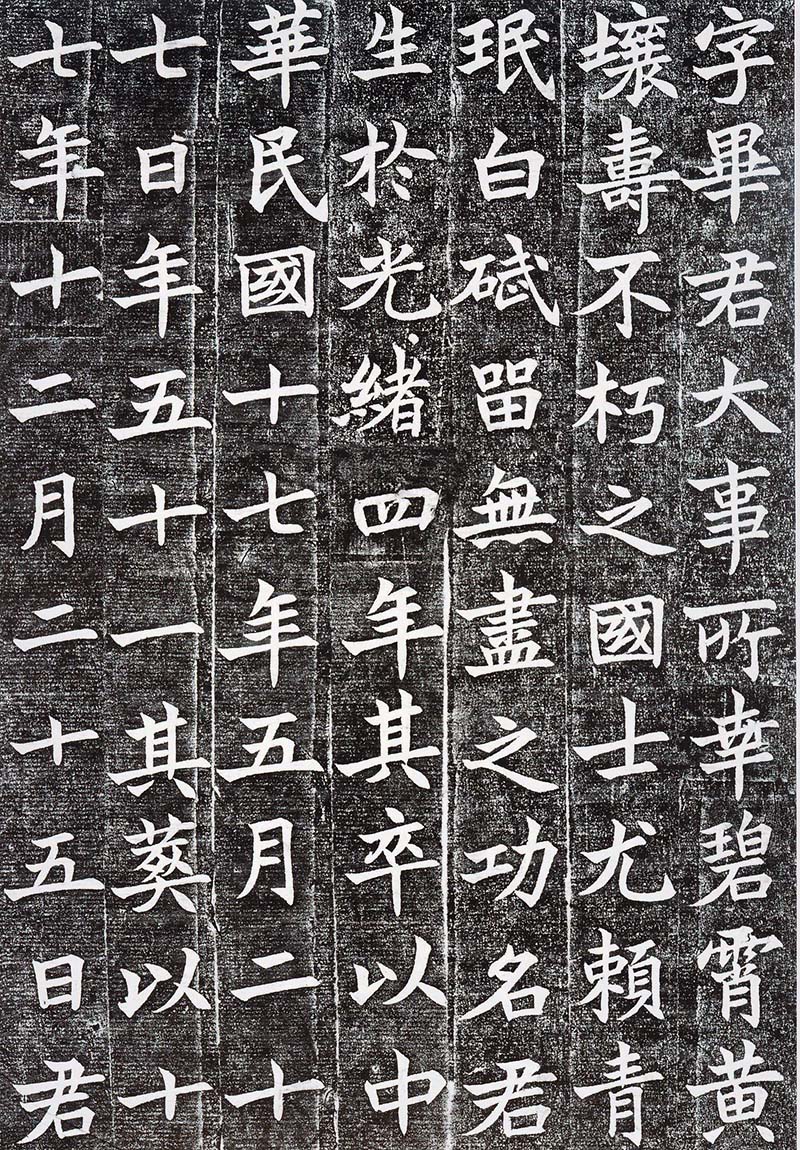 字畢君大事所幸碧霄黄
壤壽不朽之國士尤賴青
珉白碔留無盡之功名君
生於光緒四年其卒以中
華民國十七年五月二十
七日年五十一其葬以十
七年十二月二十五日君